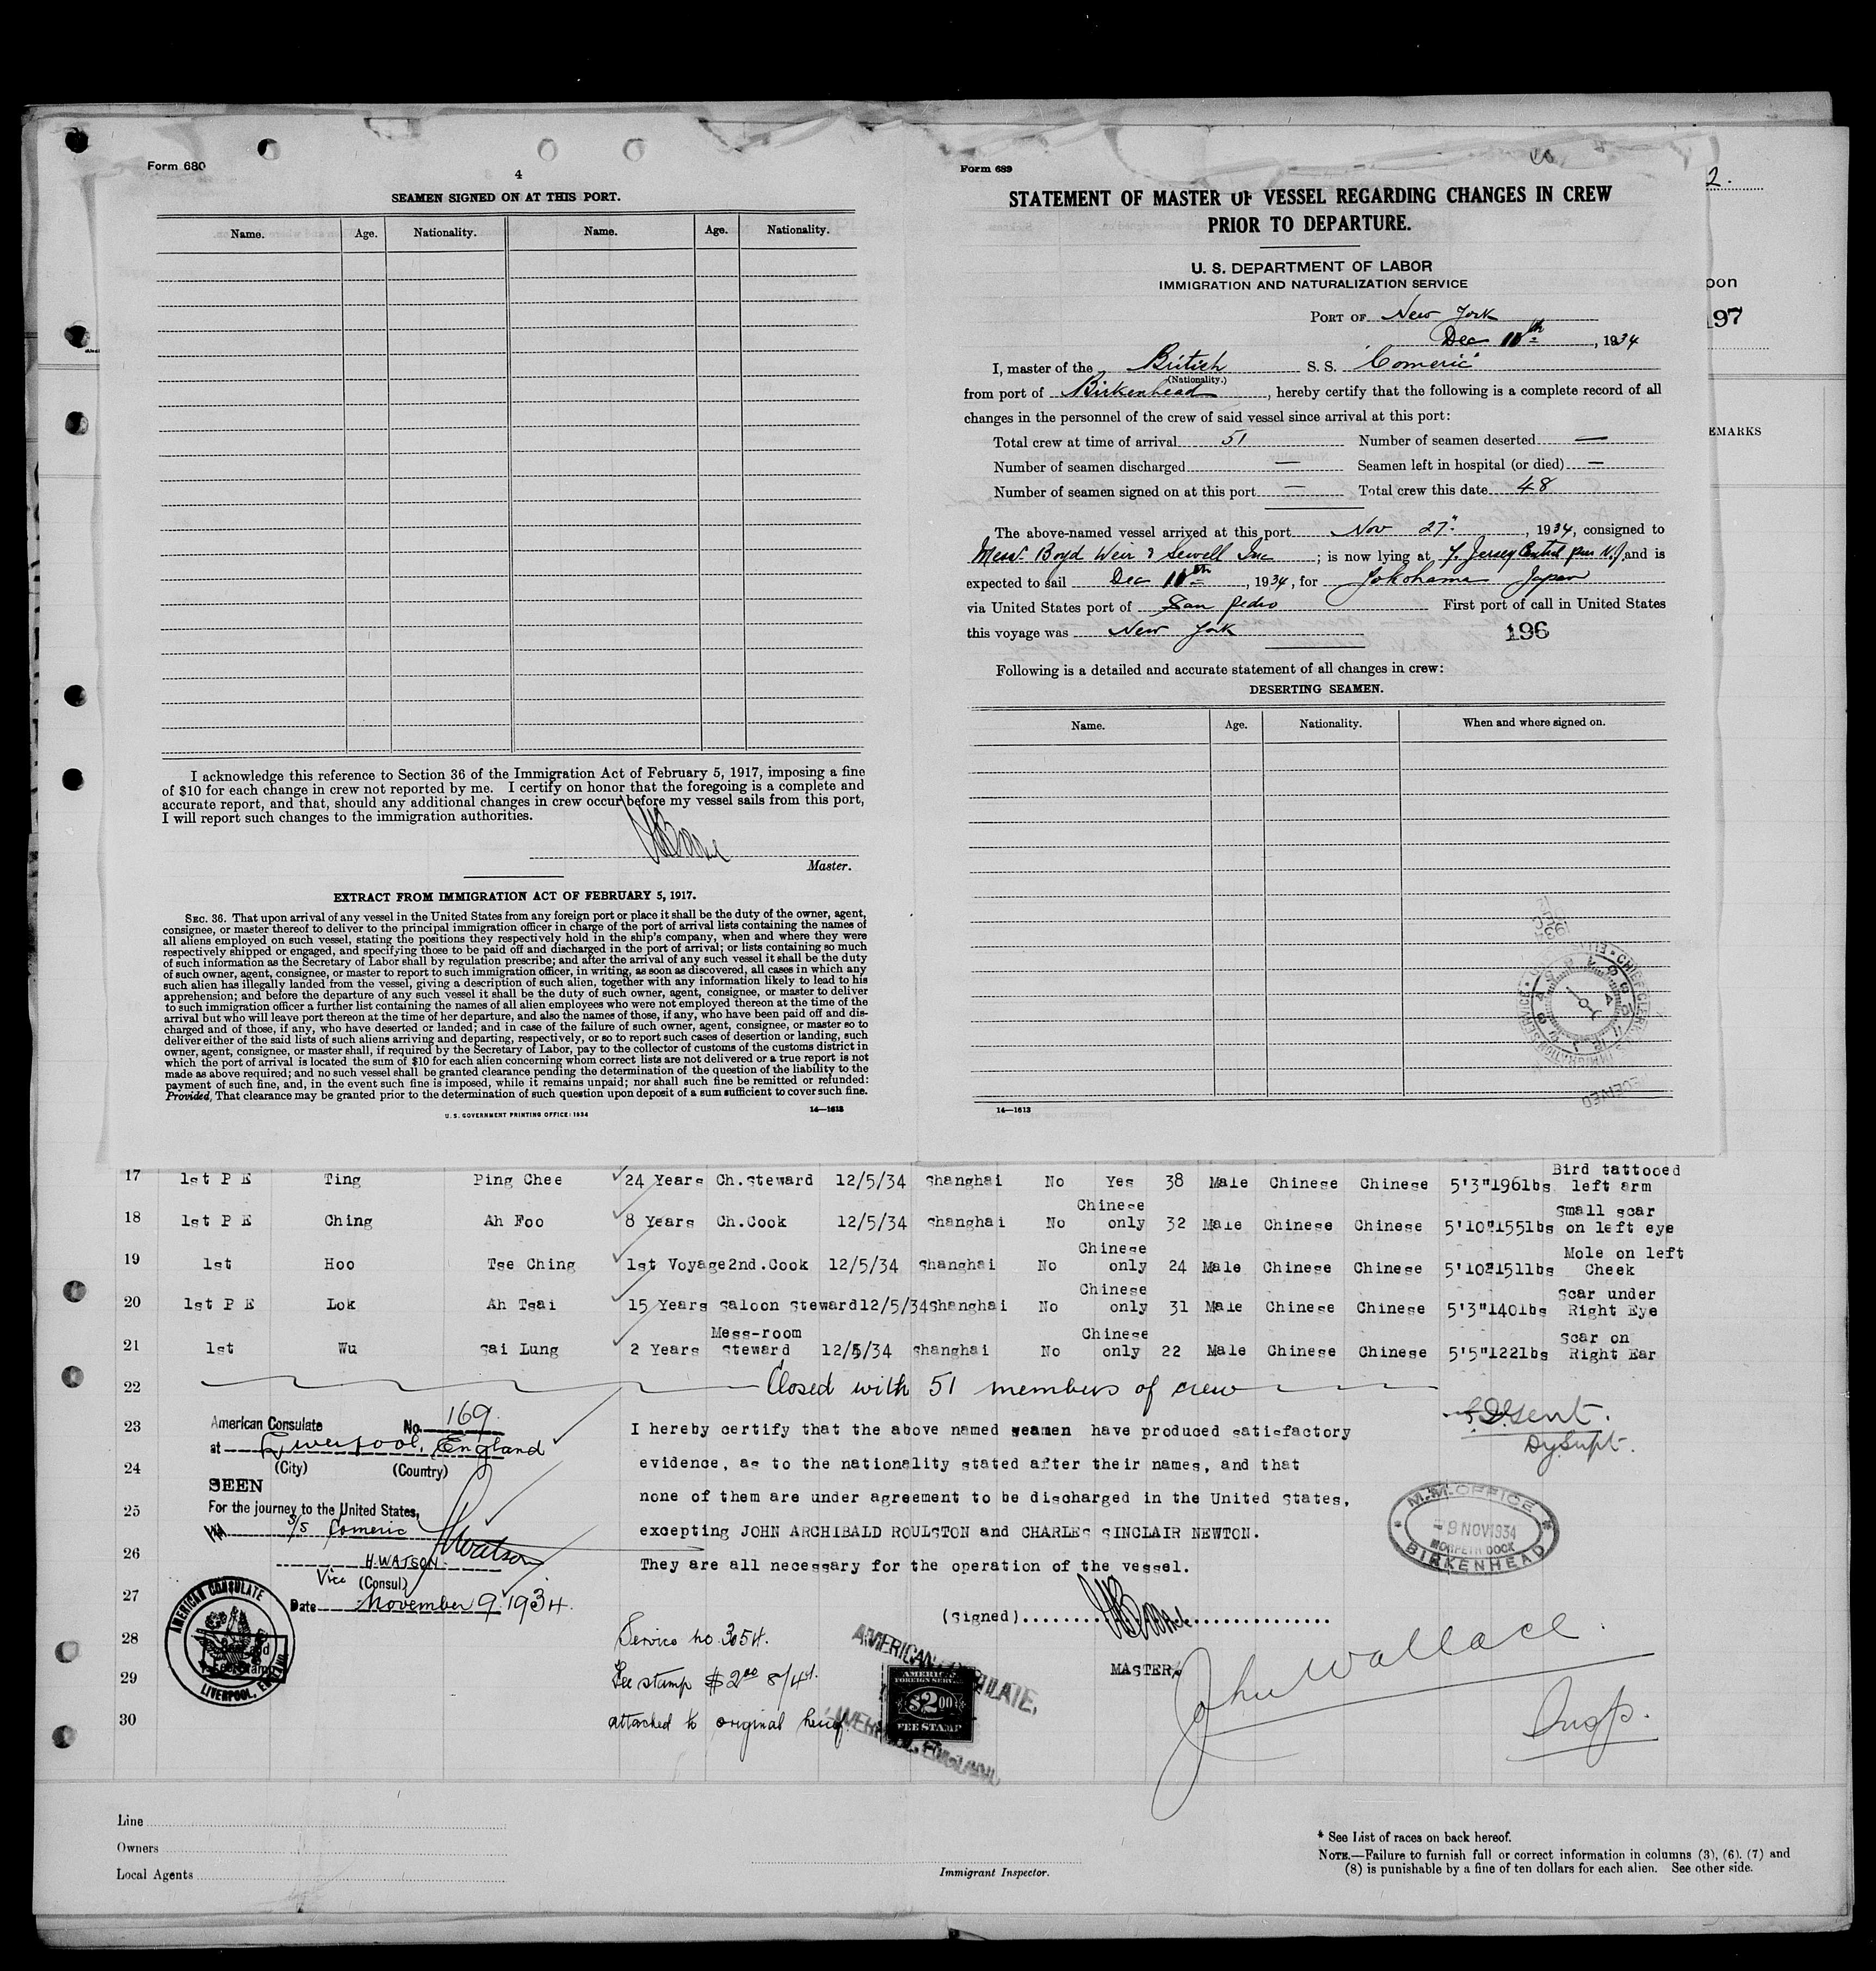 Form 680
4
SEAMEN SIGNED ON AT THIS PORT.
Name. Age. Nationality. Name. Age. Nationality.
I acknowledge this reference to Section 36 of the Immigration Act of February 5, 1917, imposing a fine
of $10 for each change in crew not reported by me. I certify on honor that the foregoing is a complete and
accurate report, and that, should any additional changes in crew occur before my vessel sails from this port,
I will report such changes to the immigration authorities.
Master.
EXTRACT FROM IMMIGRATION ACT OF FEBRUARY 5, 1917.
SEC. 36. That upon arrival of any vessel in the United States from any foreign port or place it shall be the duty of the owner, agent,
consignee, or master thereof to deliver to the principal immigration officer in charge of the port of arrival lists containing the names of
all aliens employed on such vessel, stating the positions they respectively hold in the ship's company, when and where they were
respectively shipped or engaged, and specifying those to be paid off and discharged in the port of arrival; or lists containing so much
of such information as the Secretary of Labor shall by regulation prescribe; and after the arrival of any such vessel it shall be the duty
of such owner, agent, consignee, or master to report to such immigration officer, in writing, as soon as discovered, all cases in which any
such alien has illegally landed from the vessel, giving a description of such alien, together with any information likely to lead to his
apprehension; and before the departure of any such vessel it shall be the duty of such owner, agent, consignee, or master to deliver
to such immigration officer a further list containing the names of all alien employees who were not employed thereon at the time of the
arrival but who will leave port thereon at the time of her departure, and also the names of those, if any, who have been paid off and dis-
charged and of those, if any, who have deserted or landed; and in case of the failure of such owner, agent, consignee, or master so to
deliver either of the said lists of such aliens arriving and departing, respectively, or so to report such cases of desertion or landing, such
owner, agent, consignee, or master shall, if required by the Secretary of Labor, pay to the collector of customs of the customs district in
which the port of arrival is located the sum of $10 for each alien concerning whom correct lists are not delivered or a true report is not
made as above required; and no such vessel shall be granted clearance pending the determination of the question of the liability to the
payment of such fine, and, in the event such fine is imposed, while it remains unpaid; nor shall such fine be remitted or refunded:
Provided, That clearance may be granted prior to the determination of such question upon deposit of a sum sufficient to cover such fine.
U. S. GOVERNMENT PRINTING OFFICE: 1934 14—1613
Form 689
STATEMENT OF MASTER OF VESSEL REGARDING CHANGES IN CREW
PRIOR TO DEPARTURE.
U. S. DEPARTMENT OF LABOR
IMMIGRATION AND NATURALIZATION SERVICE
PORT OF New York
Dec 10th, 1934
I, master of the British S. S. "Comeric"
(Nationality.)
from port of Birkenhead, hereby certify that the following is a complete record of all
changes in the personnel of the crew of said vessel since arrival at this port:
Total crew at time of arrival 51 Number of seamen deserted —
Number of seamen discharged — Seamen left in hospital (or died) —
Number of seamen signed on at this port — Total crew this date 48
The above-named vessel arrived at this port Nov 27", 1934, consigned to
Messrs Boyd Weir & Sewell Inc; is now lying at Jersey Central Pier N.J. and is
expected to sail Dec 10th, 1934, for Yokohama Japan
via United States port of San Pedro First port of call in United States
this voyage was New York
196
Following is a detailed and accurate statement of all changes in crew:
DESERTING SEAMEN.
Name. Age. Nationality. When and where signed on.
14—1613
RECEIVED
2.
pon
197
EMARKS
17 1st P E Ting Ping Chee 24 Years Ch.Steward 12/5/34 Shanghai No Yes 38 Male Chinese Chinese 5'3" 196lbs Bird tattooed left arm
18 1st P E Ching Ah Foo 8 Years Ch.Cook 12/5/34 Shanghai No Chinese only 32 Male Chinese Chinese 5'10" 155lbs Small scar on left eye
19 1st Hoo Tse Ching 1st Voyage 2nd.Cook 12/5/34 Shanghai No Chinese only 24 Male Chinese Chinese 5'10" 151lbs Mole on left Cheek
20 1st P E Lok Ah Tsai 15 Years Saloon Steward 12/5/34 Shanghai No Chinese only 31 Male Chinese Chinese 5'3" 140lbs Scar under Right Eye
21 1st Wu Sai Lung 2 Years Mess-room Steward 12/5/34 Shanghai No Chinese only 22 Male Chinese Chinese 5'5" 122lbs Scar on Right Ear
22 Closed with 51 members of crew
23
24
25
26
27
28
29
30
American Consulate No. 169
at Liverpool, England
(City) (Country)
SEEN
For the journey to the United States,
S/S Comeric
H. Watson
H. WATSON
Vice (Consul)
Date November 9, 1934.
AMERICAN CONSULATE
LIVERPOOL, ENGLAND
I hereby certify that the above named seamen have produced satisfactory
evidence, as to the nationality stated after their names, and that
none of them are under agreement to be discharged in the United States,
excepting JOHN ARCHIBALD ROULSTON and CHARLES SINCLAIR NEWTON.
They are all necessary for the operation of the vessel.
(Signed)
MASTER.
Dy Supt.
M.M. OFFICE
9 NOV 1934
MORPETH DOCK
BIRKENHEAD
Service no 3054.
Fee stamp $2.00 8/4d.
attached to original hereof.
AMERICAN CONSULATE,
LIVERPOOL, ENGLAND
AMERICAN
FOREIGN SERVICE
$2.00
FEE STAMP
John Wallace
Insp.
Line
Owners
Local Agents
Immigrant Inspector.
* See List of races on back hereof.
NOTE.—Failure to furnish full or correct information in columns (3), (6), (7) and
(8) is punishable by a fine of ten dollars for each alien. See other side.